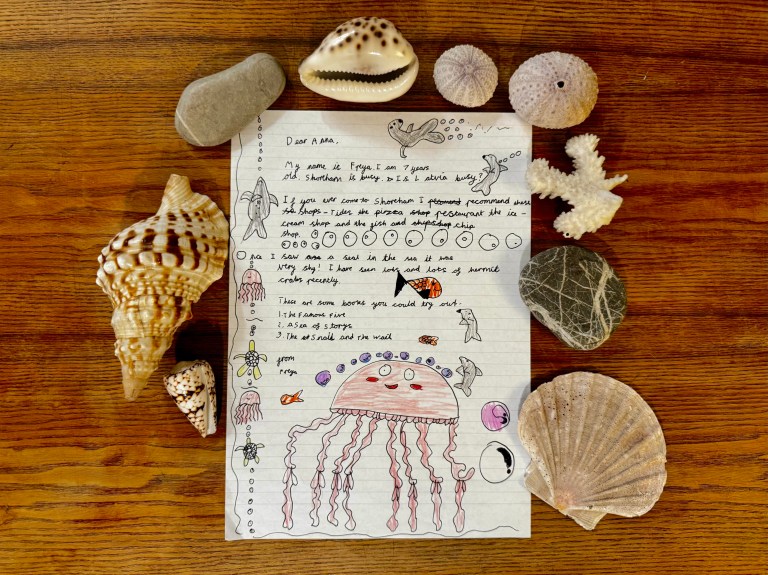 Dear Anna,
My name is Freya. I am 7 years
old. Shoreham is busy. Is Latvia busy?
If you ever come to Shoreham I recommend these
shops - Tides the pizza restaurant the ice -
cream shop and the fish and chip
shop.
Once I saw a seal in the sea it was
very shy! I have seen lots and lots of hermit
crabs recently.
These are some books you could try out.
1. The Famous Five
2. a Sea of storys
3. The Snail and the wail
from
Freya